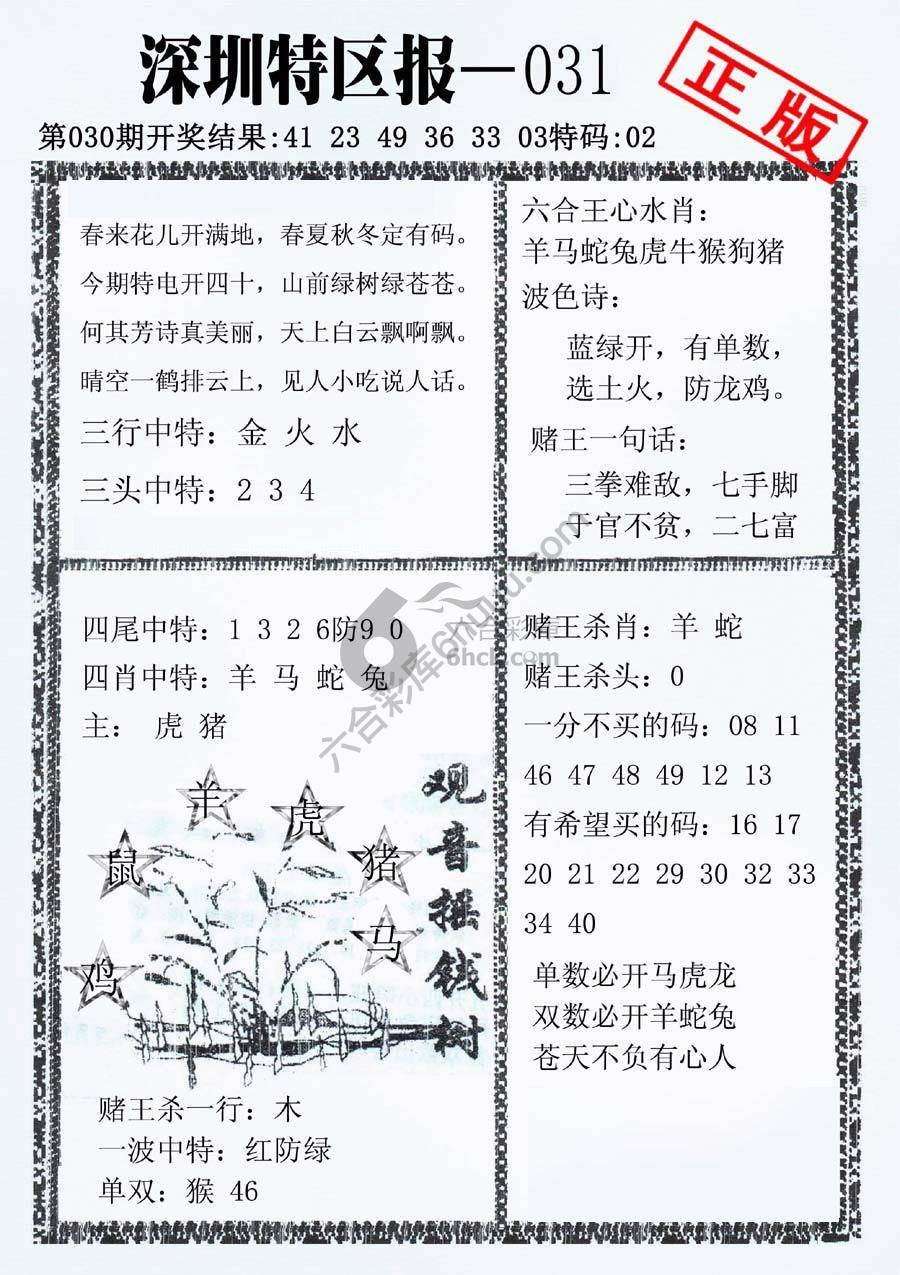 深圳特区报—031
正版
第030期开奖结果:41 23 49 36 33 03特码:02
春来花儿开满地，春夏秋冬定有码。
今期特电开四十，山前绿树绿苍苍。
何其芳诗真美丽，天上白云飘啊飘。
晴空一鹤排云上，见人小吃说人话。
三行中特：金 火 水
三头中特：2 3 4
六合王心水肖：
羊马蛇兔虎牛猴狗猪
波色诗：
蓝绿开，有单数，
选土火，防龙鸡。
赌王一句话：
三拳难敌，七手脚
于官不贫，二七富
四尾中特：1 3 2 6防9 0
四肖中特：羊 马 蛇 兔
主： 虎 猪
羊
虎
鼠
猪
马
鸡
观音摇钱树
赌王杀一行：木
一波中特：红防绿
单双：猴 46
赌王杀肖：羊 蛇
赌王杀头：0
一分不买的码：08 11
46 47 48 49 12 13
有希望买的码：16 17
20 21 22 29 30 32 33
34 40
单数必开马虎龙
双数必开羊蛇兔
苍天不负有心人
六合彩库6htutu.com
6hck.com